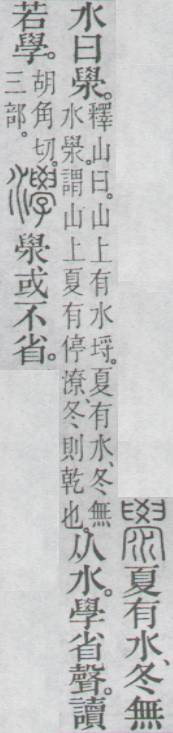 澩 夏有水、冬無
水曰澩。釋山曰。山上有水埒。夏有水、冬無
水澩。謂山上夏有停潦、冬則乾也。从水。學省聲。讀
若學。胡角切。
三部。㶅 澩或不省。